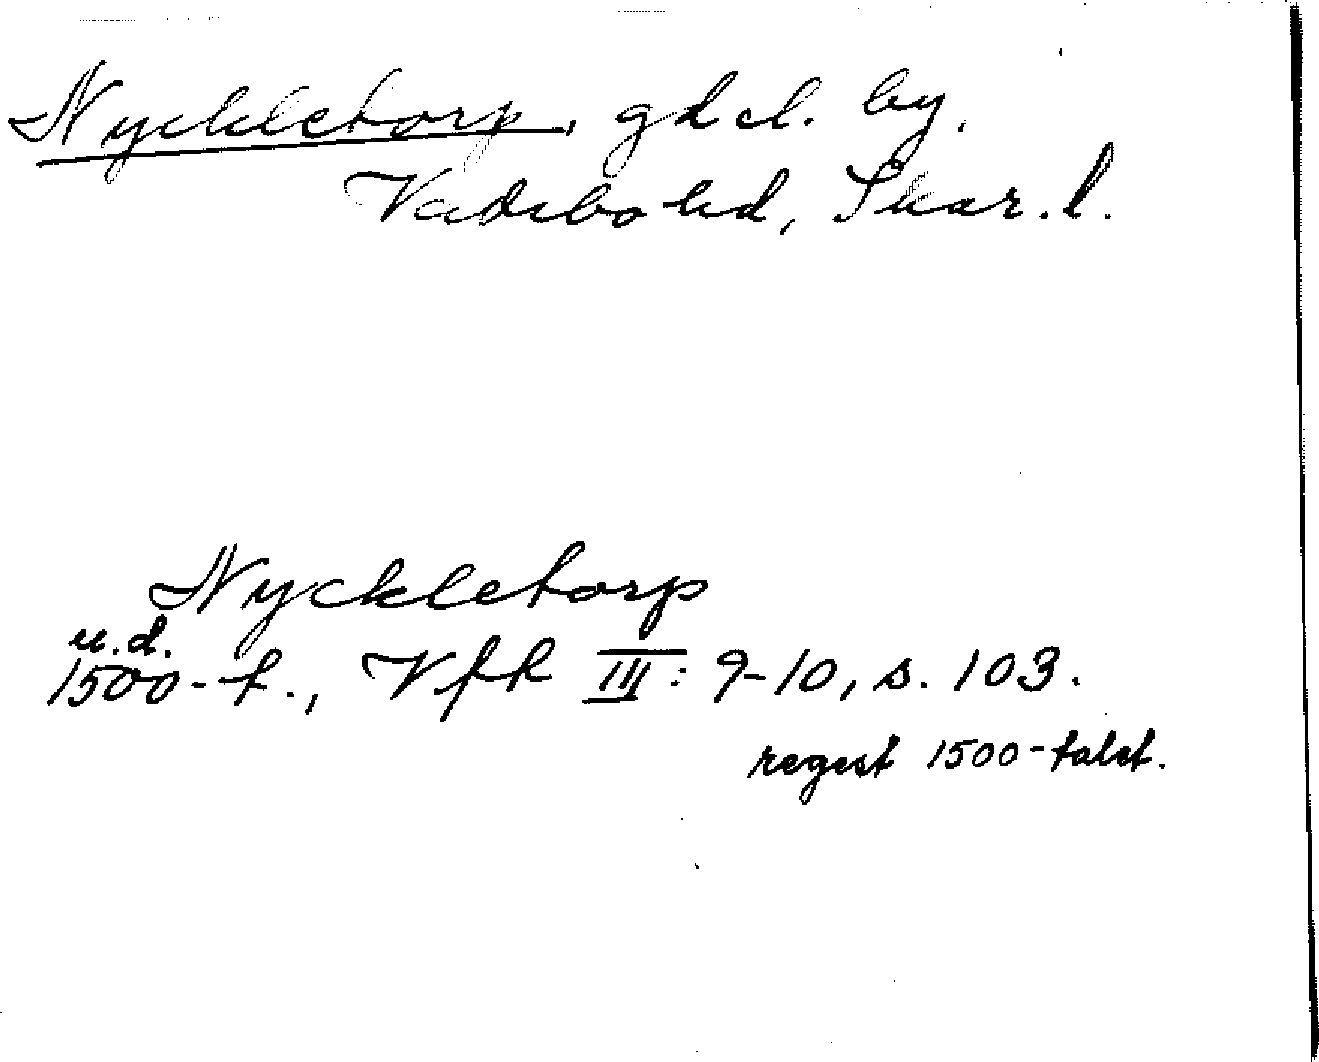 Nyckletorp, gd el. by,
Vadsbo hd, Skar. l.
Nyckletorp
u.d.
1500-t., Vfk III: 9-10, s. 103.
regest 1500-talet.